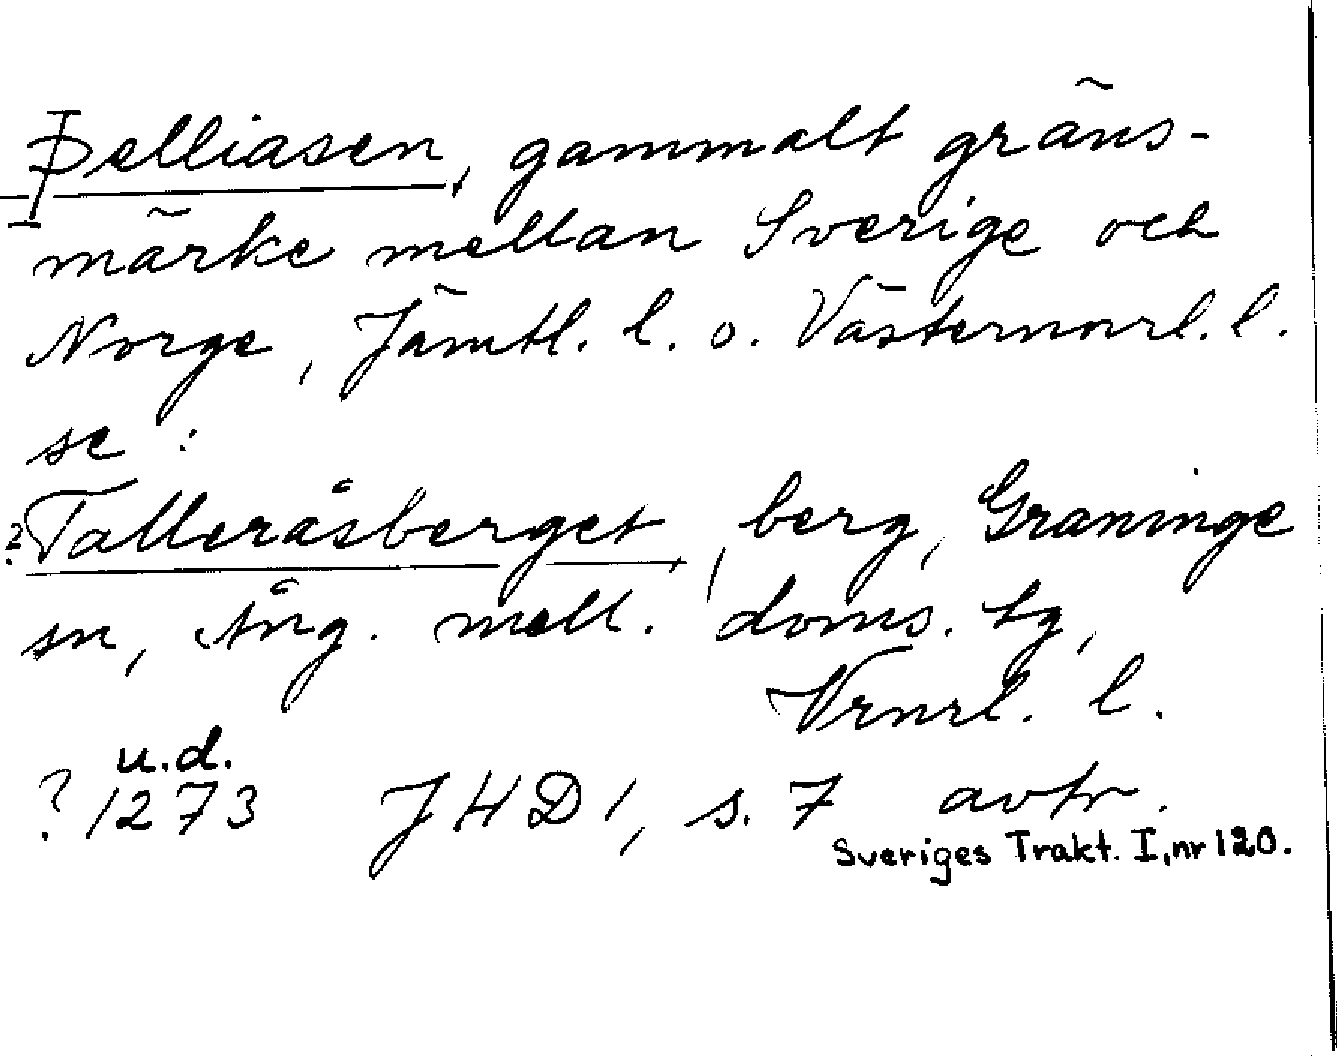 Þelliasen, gammalt gräns-
märke mellan Sverige och
Norge, Jämtl. l. o. Västernorrl. l.
se :
? Talleråsberget, berg, Graninge
sn, Ång. mell. doms. tg,
Vrnrl. l.
u.d.
? 1273 JHD 1, s. 7 avtr.
Sveriges Trakt. I, nr 120.